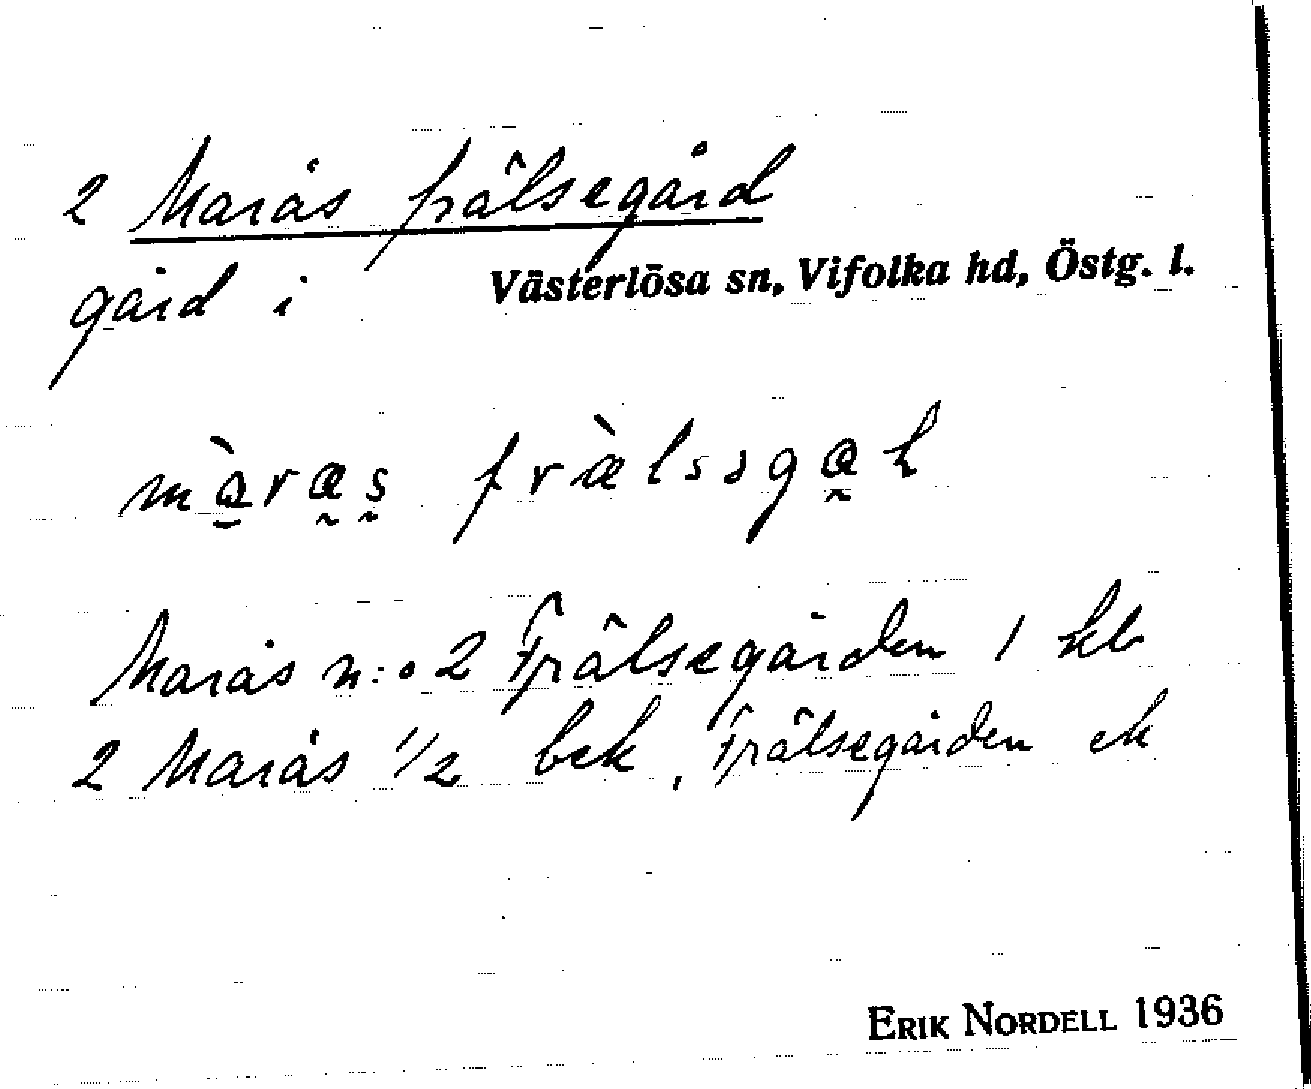 2 Marås frälsegård
gård i Västerlösa sn, Vifolka hd, Östg. l.
Marås n:o 2 Frälsegården 1 kb
2 Marås 1/2 bek, Frälsegården ek
ERIK NORDELL 1936